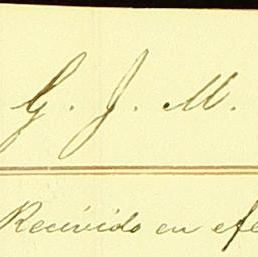 G. J. M.
Recivido en efe